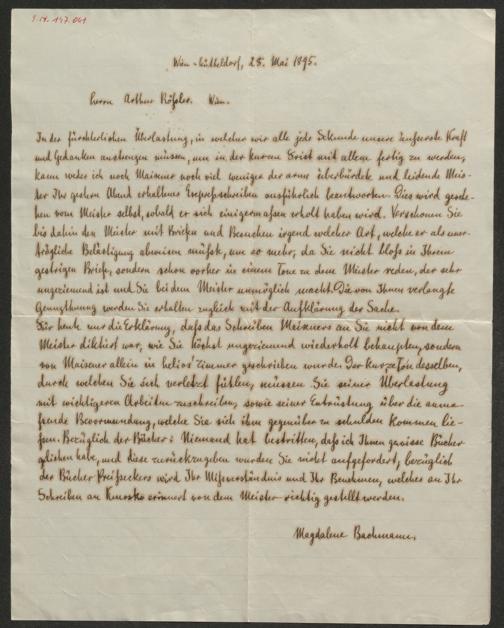 J.N. 147.061
Wien-Hütteldorf, 28. Mai 1895.
Herrn Arthur Rößler. Wien.
In der fürchterlichen Überlastung, in welcher wir alle jede Sekunde unsere äusserste Kraft
und Gedanken anstrengen müssen, um in der kurzen Frist mit allem fertig zu werden,
kann weder ich noch Meixner noch viel weniger der arme überbürdete und leidende Meis-
ter Ihr gestern Abend erhaltenes Expressschreiben ausführlich beantworten. Dies wird gesche-
hen vom Meister selbst, sobald er sich einigermassen erholt haben wird. Verschonen Sie
bis dahin den Meister mit Briefen und Besuchen irgend welcher Art, welche er als uner-
trägliche Belästigung abweisen müsste, um so mehr, da Sie nicht bloss in Ihrem
gestrigen Briefe, sondern schon vorher in einem Tone zu dem Meister reden, der sehr
ungeziemend ist und Sie bei dem Meister unmöglich macht. Die von Ihnen verlangte
Genugthuung werden Sie erhalten zugleich mit der Aufklärung der Sache.
Für heute nur die Erklärung, dass das Schreiben Meixners an Sie nicht von dem
Meister diktiert war, wie Sie höchst ungeziemend wiederholt behaupten, sondern
von Meixner allein in helios' Zimmer geschrieben wurde. Der kurze Ton desselben,
durch welchen Sie sich verletzt fühlen, müssen Sie seiner Überlastung
mit wichtigeren Arbeiten zuschreiben, sowie seiner Entrüstung über die anma-
ssende Bevormundung, welche Sie sich ihm gegenüber zu schulden kommen lie-
ssen. Bezüglich der Bücher: Niemand hat bestritten, dass ich Ihnen gewisse Bücher
geliehen habe, und diese zurückzugeben wurden Sie nicht aufgefordert, bezüglich
der Bücher Preisseckers wird Ihr Missverständnis und Ihr Benehmen, welches an Ihr
Schreiben an erinnert von dem Meister richtig gestellt werden.
Magdalene Bachmann.